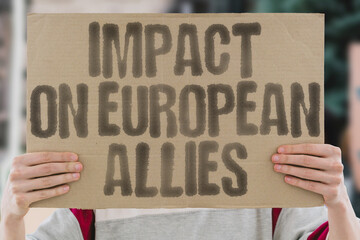 IMPACT
ON EUROPEAN
ALLIES